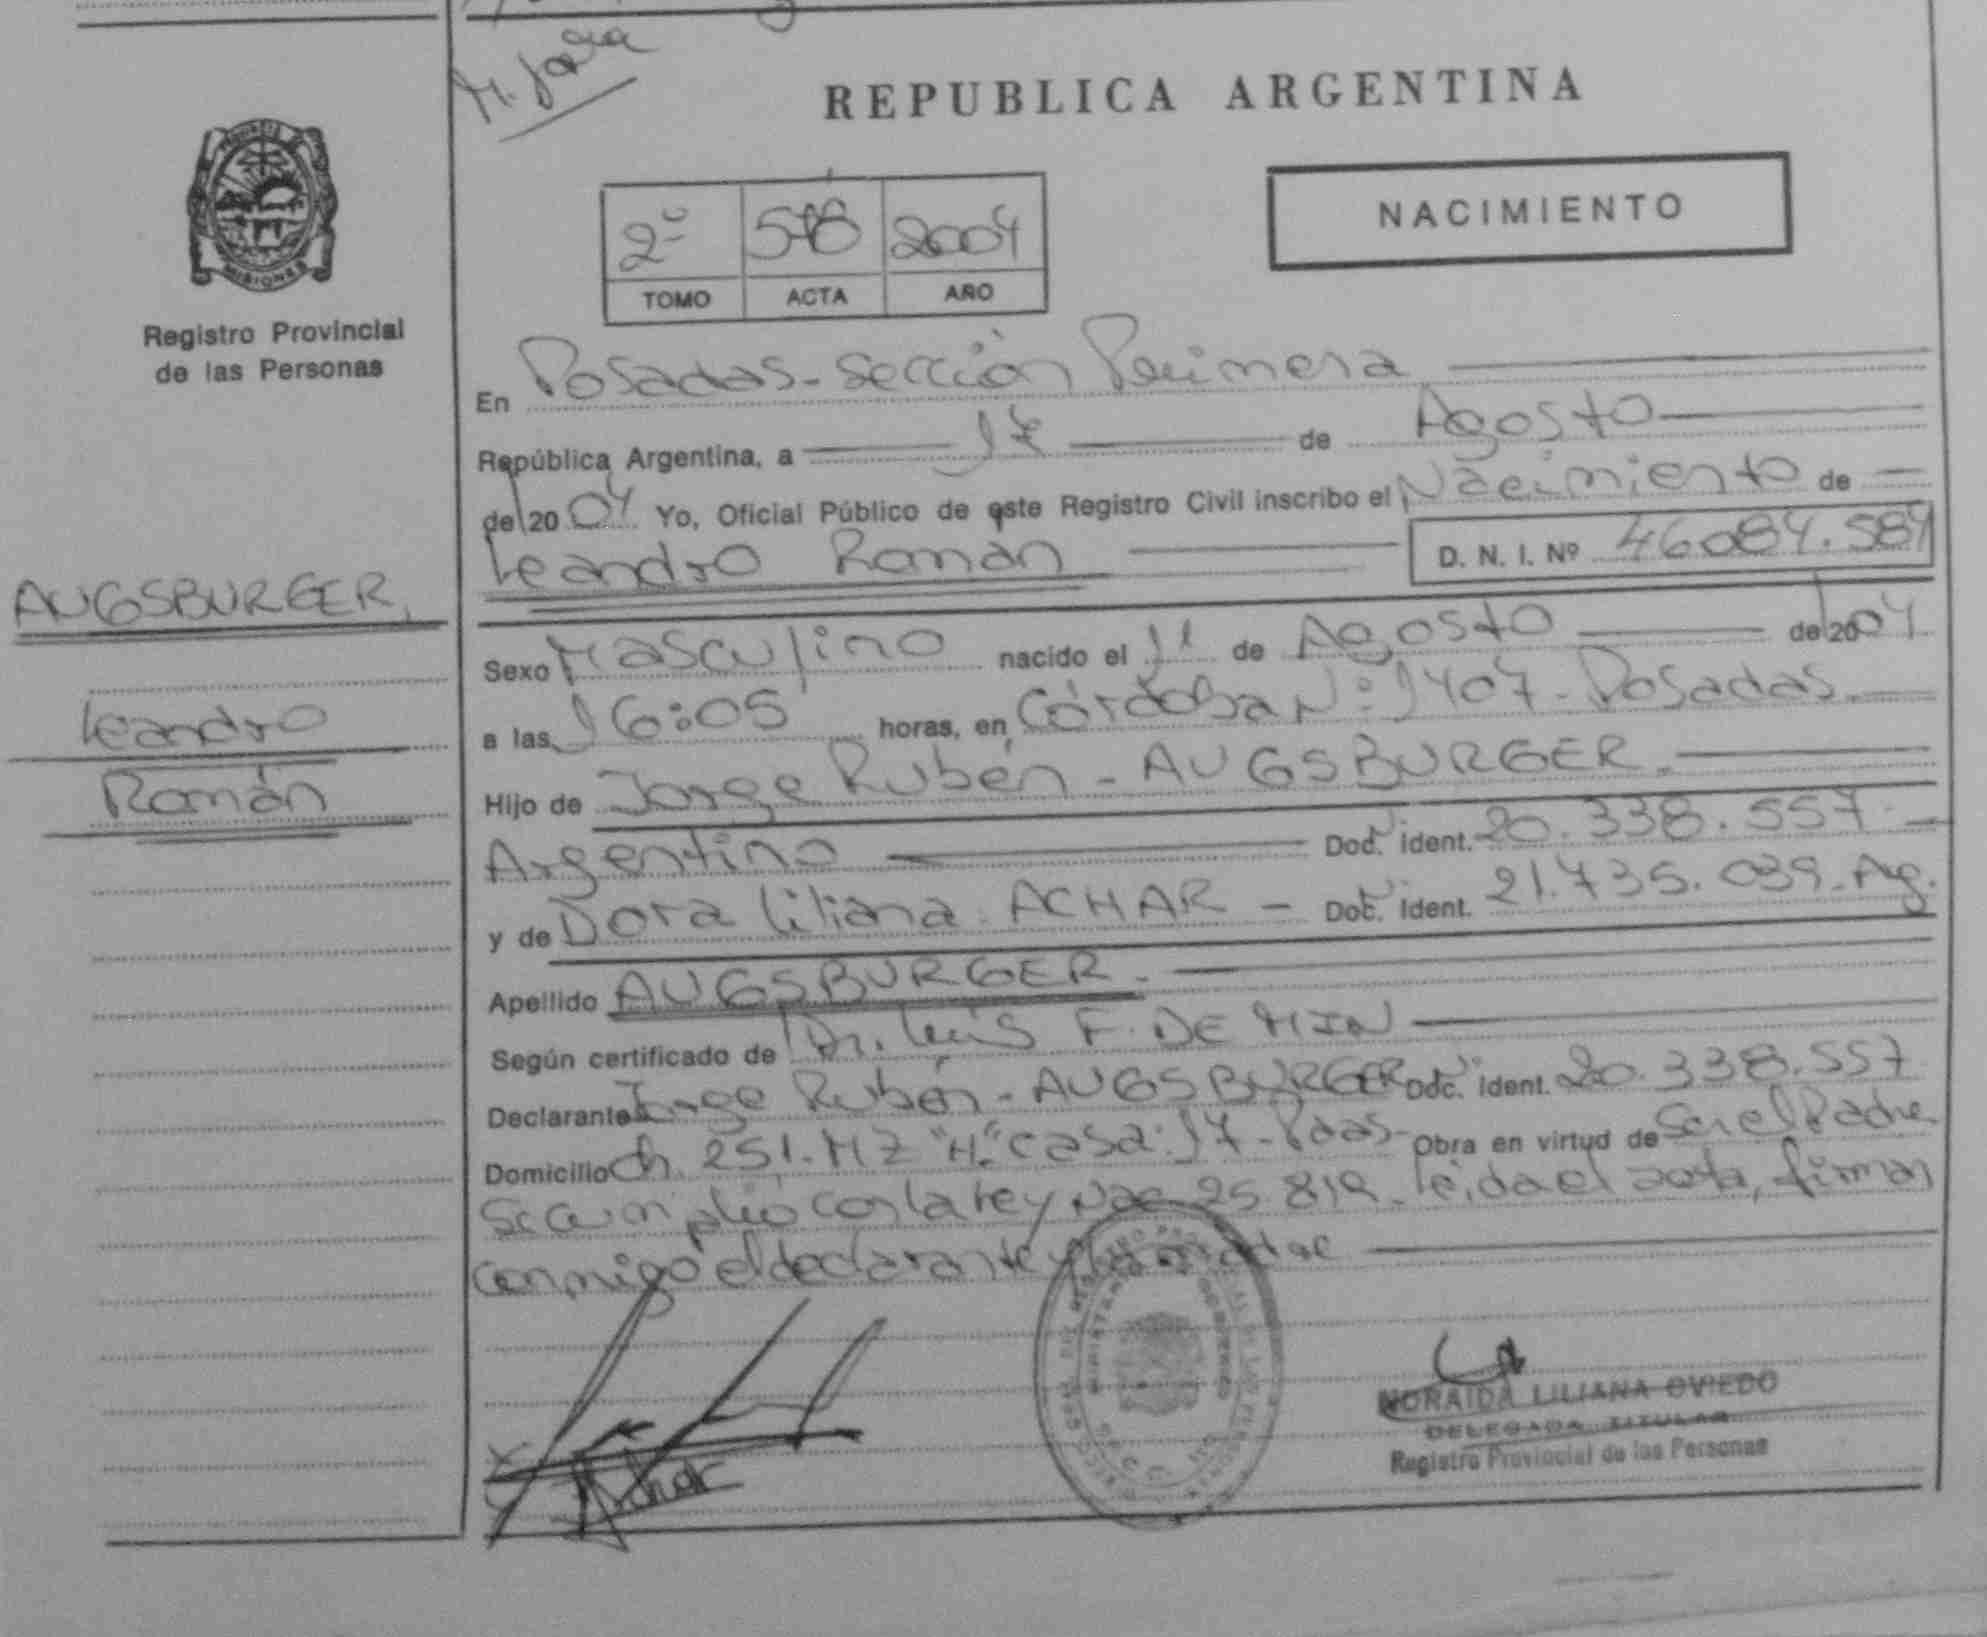 REPUBLICA ARGENTINA
NACIMIENTO
2º 2004
TOMO ACTA AÑO
MISIONES
Registro Provincial
de las Personas
En Posadas - Sección Primera
República Argentina, a 17 de Agosto
de 2004 Yo, Oficial Público de este Registro Civil inscribo el Nacimiento de
Leandro Román D. N. I. Nº 46.084.584
AUGSBURGER,
Leandro
Román
Sexo Masculino nacido el 11 de Agosto de 2004
a las 16:05 horas, en Córdoba Nº: 1407 - Posadas.
Hijo de Jorge Rubén - AUGSBURGER.
Argentino Doc. ident. 20.338.557
y de Dora Liliana ACHAR - Doc. Ident. 21.735.039 - Arg.
Apellido AUGSBURGER.
Según certificado de Dr. Luis F. DE MIN
Declarante Jorge Rubén - AUGSBURGER Doc. ident. 20.338.557
Domicilio Ch. 251. MZ "H" Casa: 17 - Pdas - Obra en virtud de Ser el Padre
Se cumplió con la Ley Nac 25.819. Leída el acta, firman
conmigo el declarante y la madre
Achar
NORAIDA LILIANA OVIEDO
DELEGADA TITULAR
Registro Provincial de las Personas